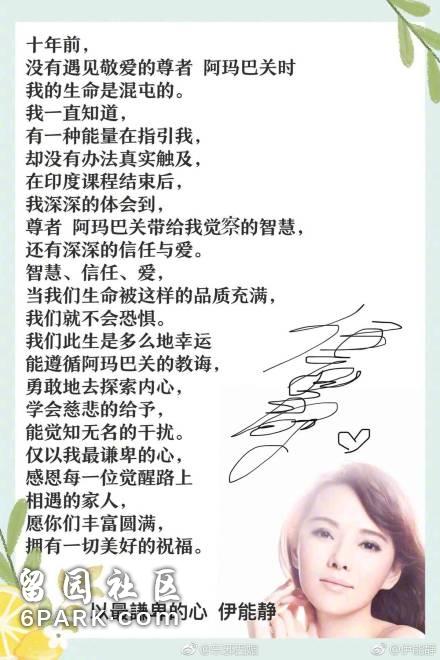 十年前，
没有遇见敬爱的尊者 阿玛巴关时
我的生命是混屯的。
我一直知道，
有一种能量在指引我，
却没有办法真实触及，
在印度课程结束后，
我深深的体会到，
尊者 阿玛巴关带给我觉察的智慧，
还有深深的信任与爱。
智慧、信任、爱，
当我们生命被这样的品质充满，
我们就不会恐惧。
我们此生是多么地幸运
能遵循阿玛巴关的教诲，
勇敢地去探索内心，
学会慈悲的给予，
能觉知无名的干扰。
仅以我最谦卑的心，
感恩每一位觉醒路上
相遇的家人，
愿你们丰富圆满，
拥有一切美好的祝福。
以最謙卑的心 伊能静
留园社区
6PARK.COM
@伊能静